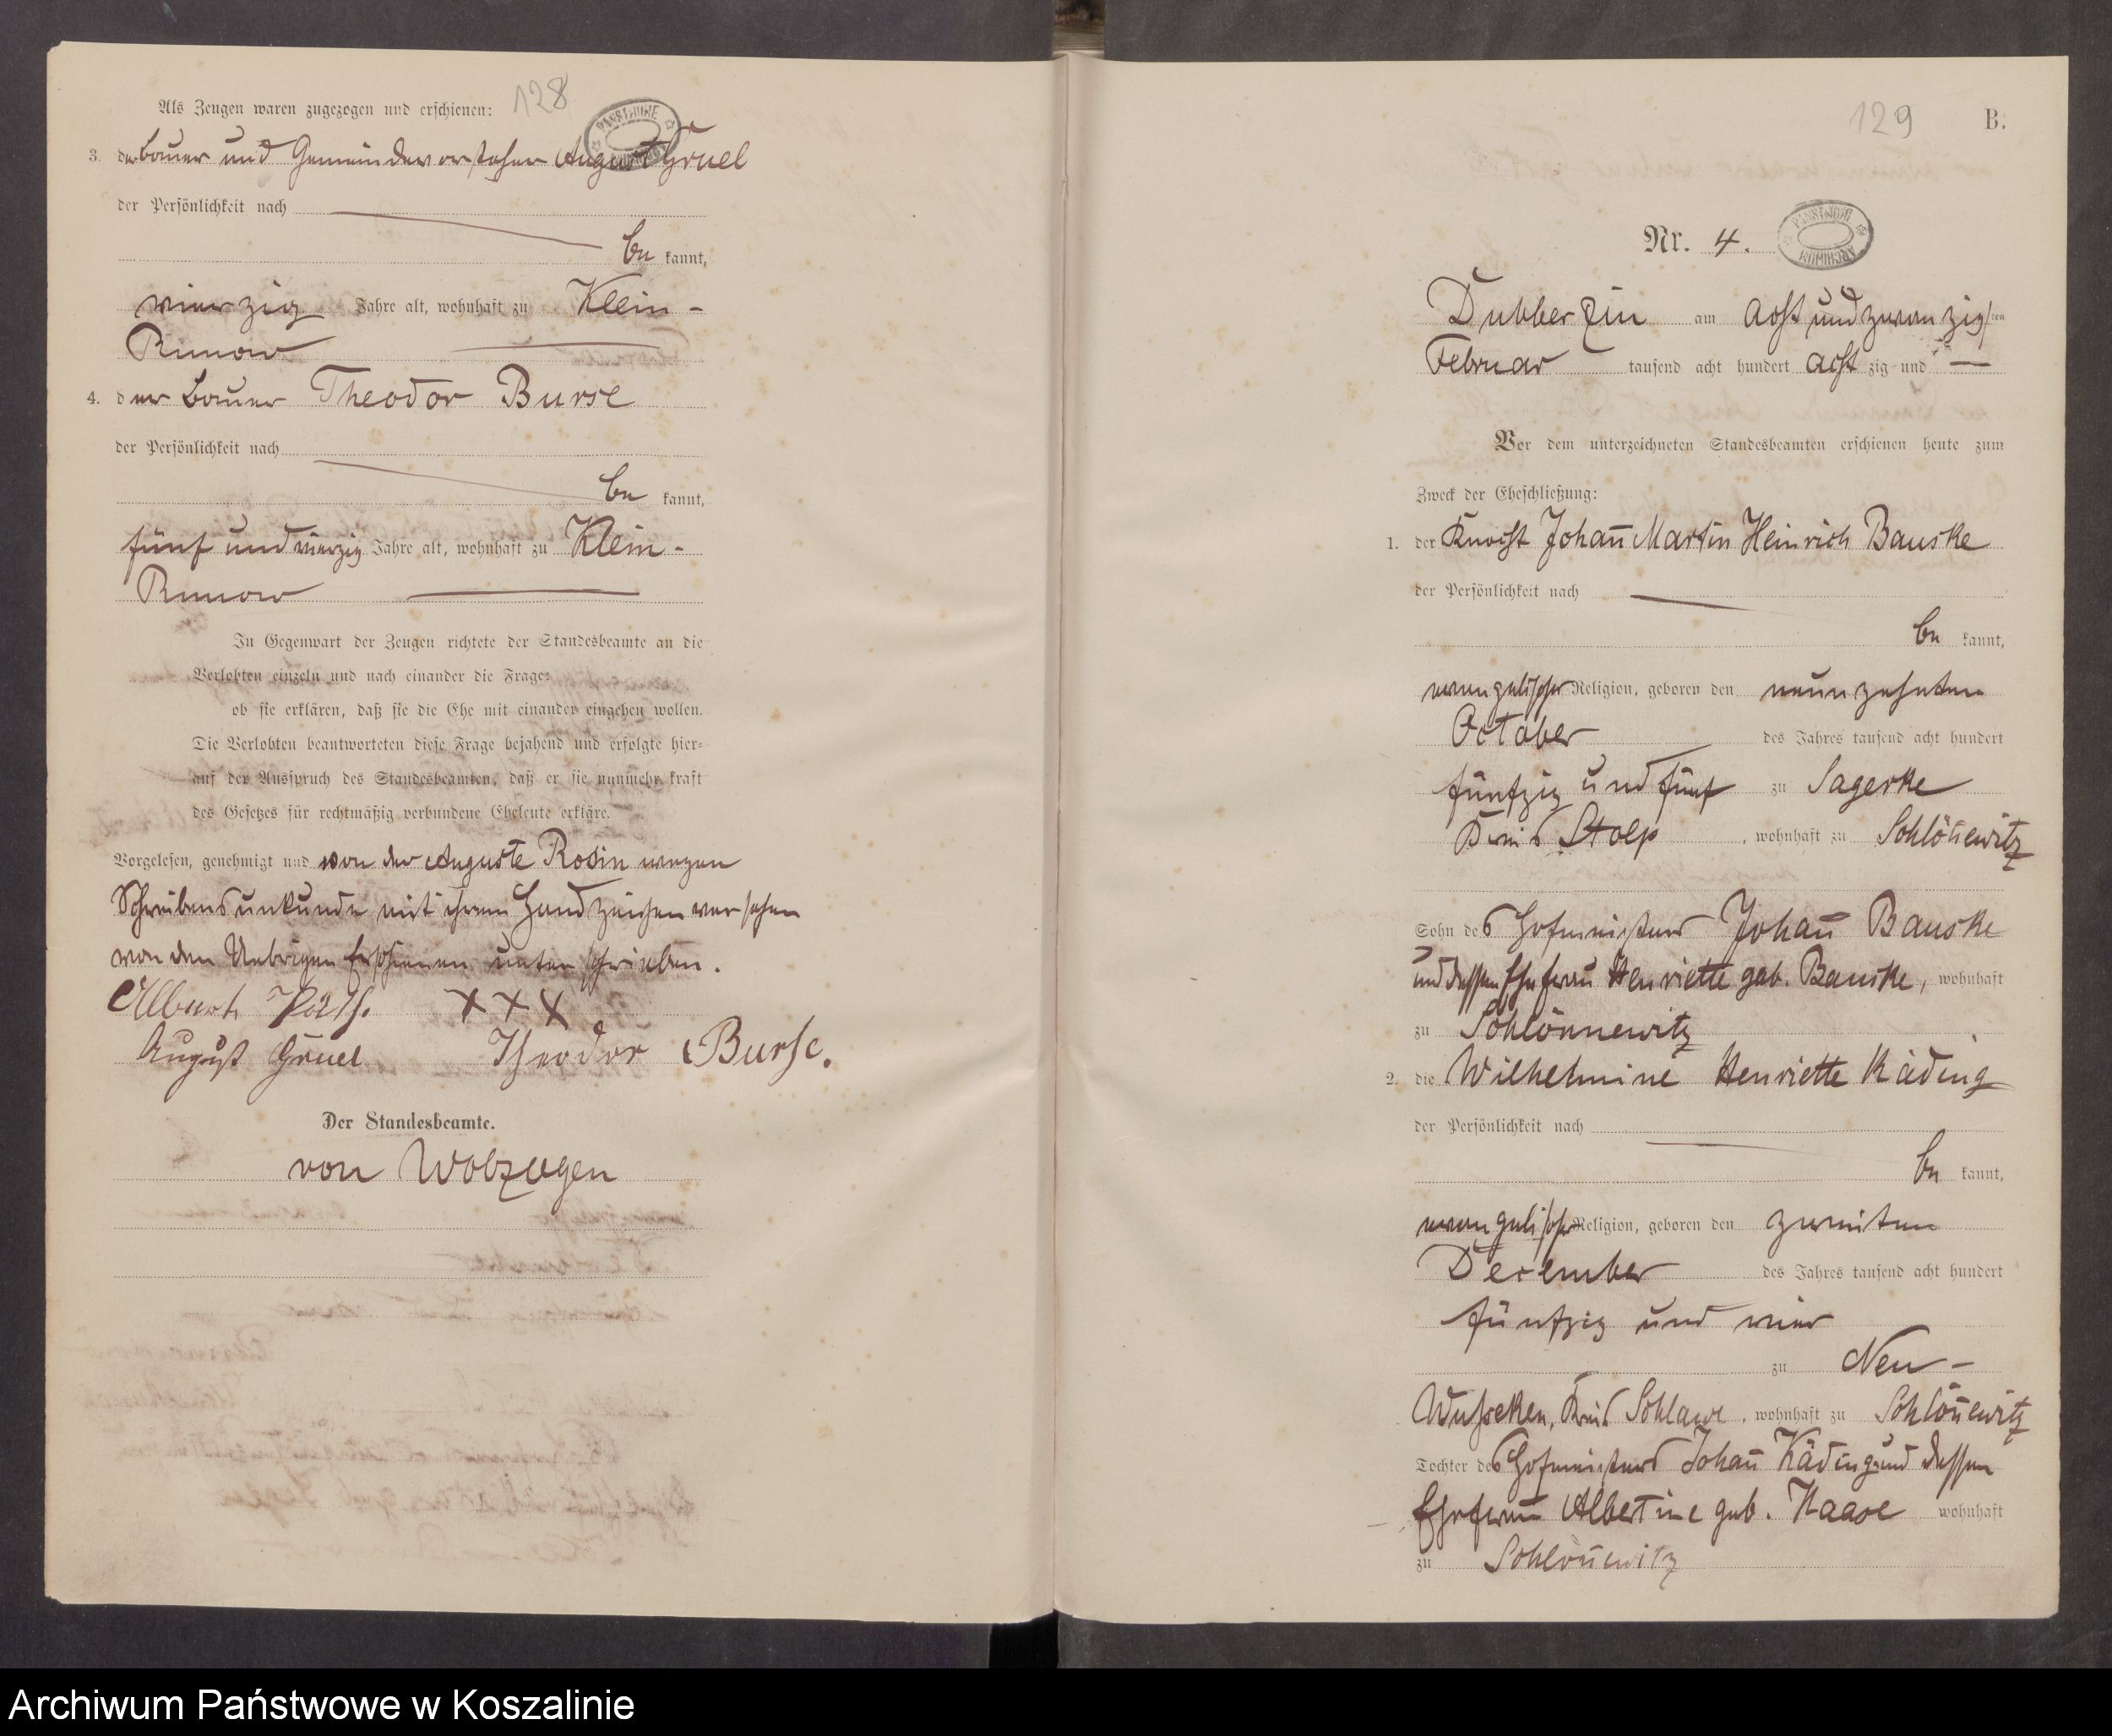 128
Als Zeugen waren zugezogen und erschienen:
3. der Bauer und Gemeindevorsteher August Gruel
der Persönlichkeit nach
be kannt,
vierzig Jahre alt, wohnhaft zu Klein-
Runow
4. der Bauer Theodor Burse
der Persönlichkeit nach
be kannt,
fünf und vierzig Jahre alt, wohnhaft zu Klein-
Runow
In Gegenwart der Zeugen richtete der Standesbeamte an die
Verlobten einzeln und nach einander die Frage:
ob sie erklären, daß sie die Ehe mit einander eingehen wollen.
Die Verlobten beantworteten diese Frage bejahend und erfolgte hier-
auf der Ausspruch des Standesbeamten, daß er sie nunmehr kraft
des Gesetzes für rechtmäßig verbundene Eheleute erkläre.
Vorgelesen, genehmigt und von der Auguste Rosin wegen
Schreibensunkunde mit ihrem Handzeichen versehen
von den Uebrigen Erschienenen unterschrieben.
Albert XXX
August Gruel Theodor Burse.
Der Standesbeamte.
von Wolzogen
129 B.
PANSTWOWE ARCHIWUM
Nr. 4.
Dubberzin am acht und zwanzigsten
Februar tausend acht hundert acht zig und —
Vor dem unterzeichneten Standesbeamten erschienen heute zum
Zweck der Eheschließung:
1. der Knecht Johan̄ Martin Heinrich Bauske
der Persönlichkeit nach
be kannt,
evangelischer Religion, geboren den neunzehnten
October des Jahres tausend acht hundert
fünfzig und fünf zu Sagerke
Kreis Stolp, wohnhaft zu Schlön̄ewitz
Sohn des Hofmeisters Johan̄ Bauske
und dessen Ehefrau Henriette geb. Bauske, wohnhaft
zu Schlönnewitz
2. die Wilhelmine Henriette Käding
der Persönlichkeit nach
be kannt,
evangelischer Religion, geboren den zweiten
December des Jahres tausend acht hundert
fünfzig und vier
zu Neu-
Wusseken, Kreis Schlawe, wohnhaft zu Schlön̄ewitz
Tochter des Hofmeisters Johan̄ Käding und dessen
Ehefrau Albertine geb. Haase wohnhaft
zu Schlön̄ewitz
Archiwum Państwowe w Koszalinie